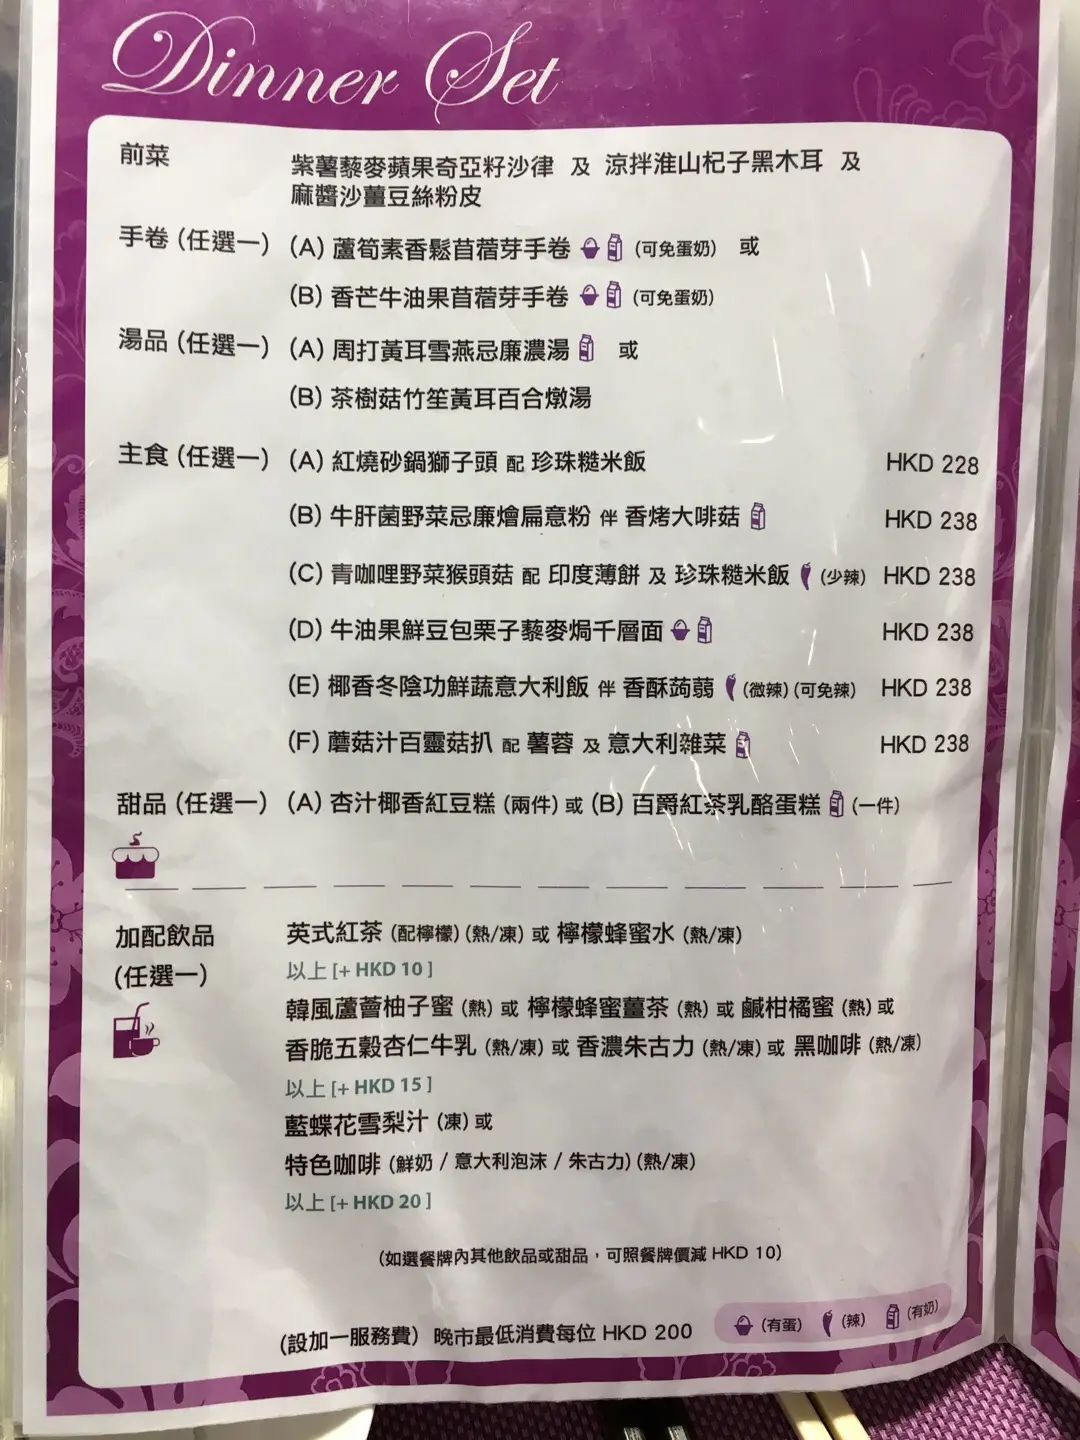 Dinner Set
前菜 紫薯藜麥蘋果奇亞籽沙律 及 涼拌淮山杞子黑木耳 及
麻醬沙薑豆絲粉皮
手卷 (任選一) (A) 蘆筍素香鬆苜蓿芽手卷 (可免蛋奶) 或
(B) 香芒牛油果苜蓿芽手卷 (可免蛋奶)
湯品 (任選一) (A) 周打黃耳雪燕忌廉濃湯 或
(B) 茶樹菇竹笙黃耳百合燉湯
主食 (任選一) (A) 紅燒砂鍋獅子頭 配 珍珠糙米飯 HKD 228
(B) 牛肝菌野菜忌廉燴扁意粉 伴 香烤大啡菇 HKD 238
(C) 青咖哩野菜猴頭菇 配 印度薄餅 及 珍珠糙米飯 (少辣) HKD 238
(D) 牛油果鮮豆包栗子藜麥焗千層面 HKD 238
(E) 椰香冬陰功鮮蔬意大利飯 伴 香酥蒟蒻 (微辣) (可免辣) HKD 238
(F) 蘑菇汁百靈菇扒 配 薯蓉 及 意大利雜菜 HKD 238
甜品 (任選一) (A) 杏汁椰香紅豆糕 (兩件) 或 (B) 百爵紅茶乳酪蛋糕 (一件)
加配飲品 英式紅茶 (配檸檬) (熱/凍) 或 檸檬蜂蜜水 (熱/凍)
(任選一) 以上 [+ HKD 10]
韓風蘆薈柚子蜜 (熱) 或 檸檬蜂蜜薑茶 (熱) 或 鹹柑橘蜜 (熱) 或
香脆五穀杏仁牛乳 (熱/凍) 或 香濃朱古力 (熱/凍) 或 黑咖啡 (熱/凍)
以上 [+ HKD 15]
藍蝶花雪梨汁 (凍) 或
特色咖啡 (鮮奶 / 意大利泡沫 / 朱古力) (熱/凍)
以上 [+ HKD 20]
(如選餐牌內其他飲品或甜品，可照餐牌價減 HKD 10)
(設加一服務費) 晚市最低消費每位 HKD 200 (有蛋) (辣) (有奶)